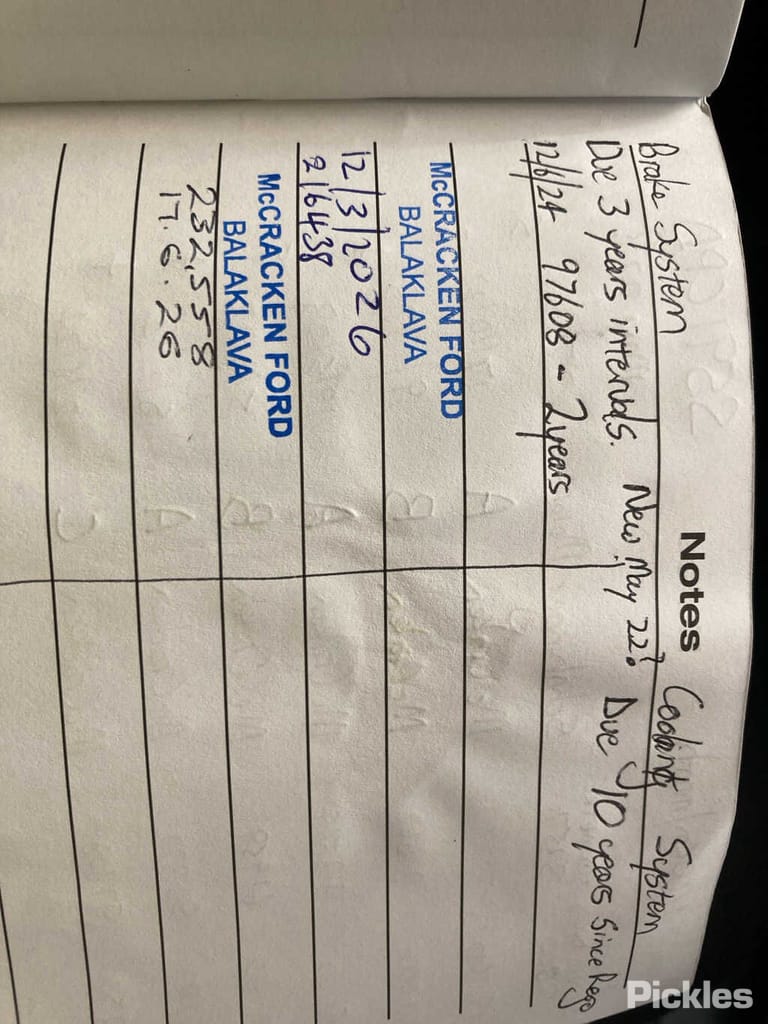 Notes
Brake System
Cooling System
Due 3 years intervals. New May 22?
Due 10 years since Rego
12/6/24 97608 - 2 years
McCRACKEN FORD
BALAKLAVA
12/3/2026
216438
McCRACKEN FORD
BALAKLAVA
232,558
17.6.26
Pickles